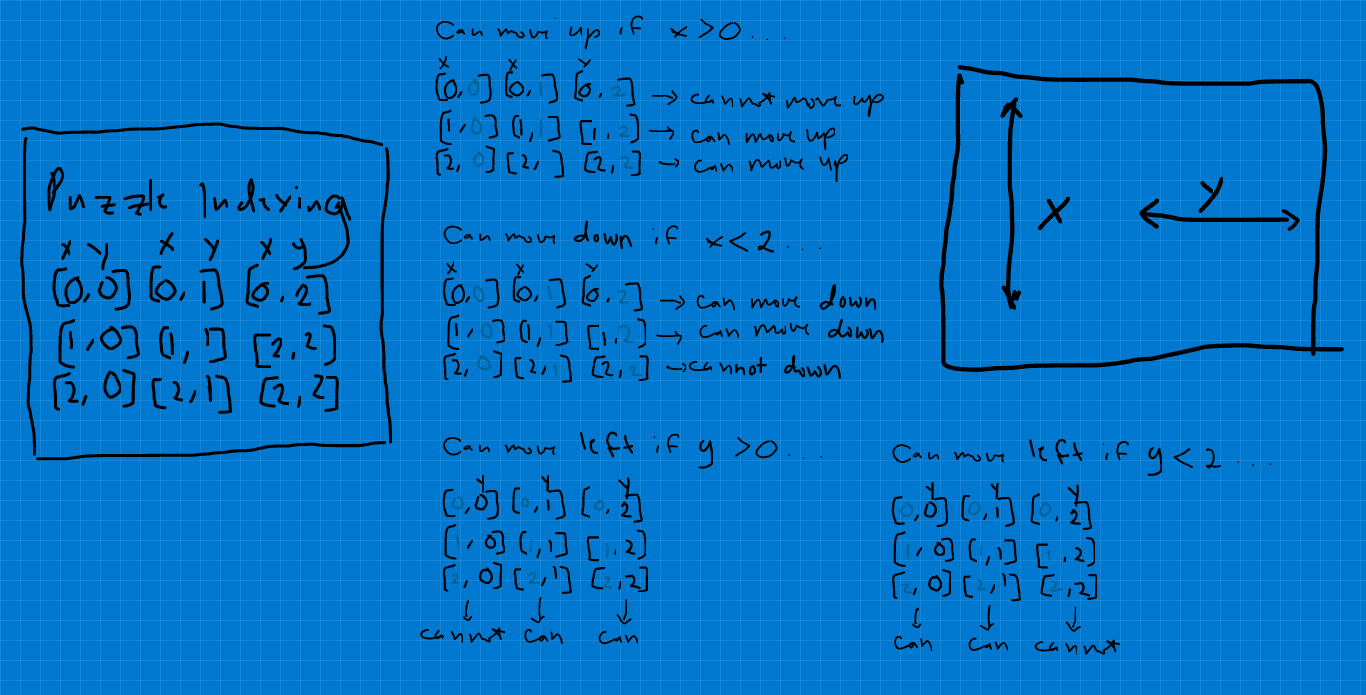 Puzzle Indexing
x y x y x y
[0,0] [0,1] [0,2]
[1,0] [1,1] [2,2]
[2,0] [2,1] [2,2]
Can move up if x>0...
x x y
[0,0] [0,1] [0,2] → cannot move up
[1,0] [1,1] [1,2] → can move up
[2,0] [2, ] [2,2] → can move up
Can move down if x<2...
x x y
[0,0] [0,1] [0,2] → can move down
[1,0] [1,1] [1,2] → can move down
[2,0] [2,1] [2,2] → cannot down
Can move left if y >0...
y y y
[0,0] [0,1] [0,2]
[1,0] [1,1] [1,2]
[2,0] [2,1] [2,2]
↓ ↓ ↓
cannot can can
x y
Can move left if y<2...
y y y
[0,0] [0,1] [0,2]
[1,0] [1,1] [1,2]
[2,0] [2,1] [2,2]
↓ ↓ ↓
can can cannot